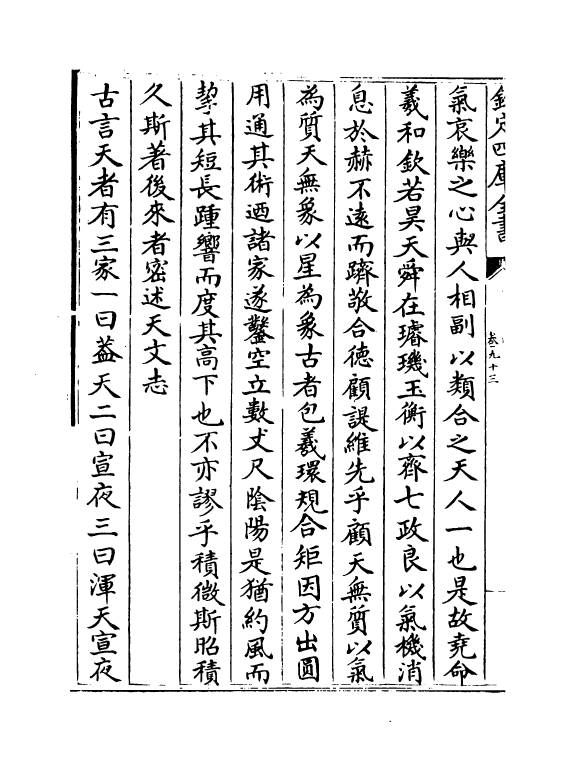 欽定四庫全書
卷九十三
氣哀樂之心與人相副以類合之天人一也是故堯命
羲和欽若昊天舜在璿璣玉衡以齊七政良以氣機消
息於赫不遠而躋敬合徳顧諟維先乎顧天無質以氣
為質天無象以星為象古者包羲環規合矩因方出圓
用通其術迺諸家遂鑿空立數丈尺陰陽是猶約風而
挈其短長踵響而度其高下也不亦謬乎積微斯昭積
久斯著後來者密述天文志
古言天者有三家一曰葢天二曰宣夜三曰渾天宣夜